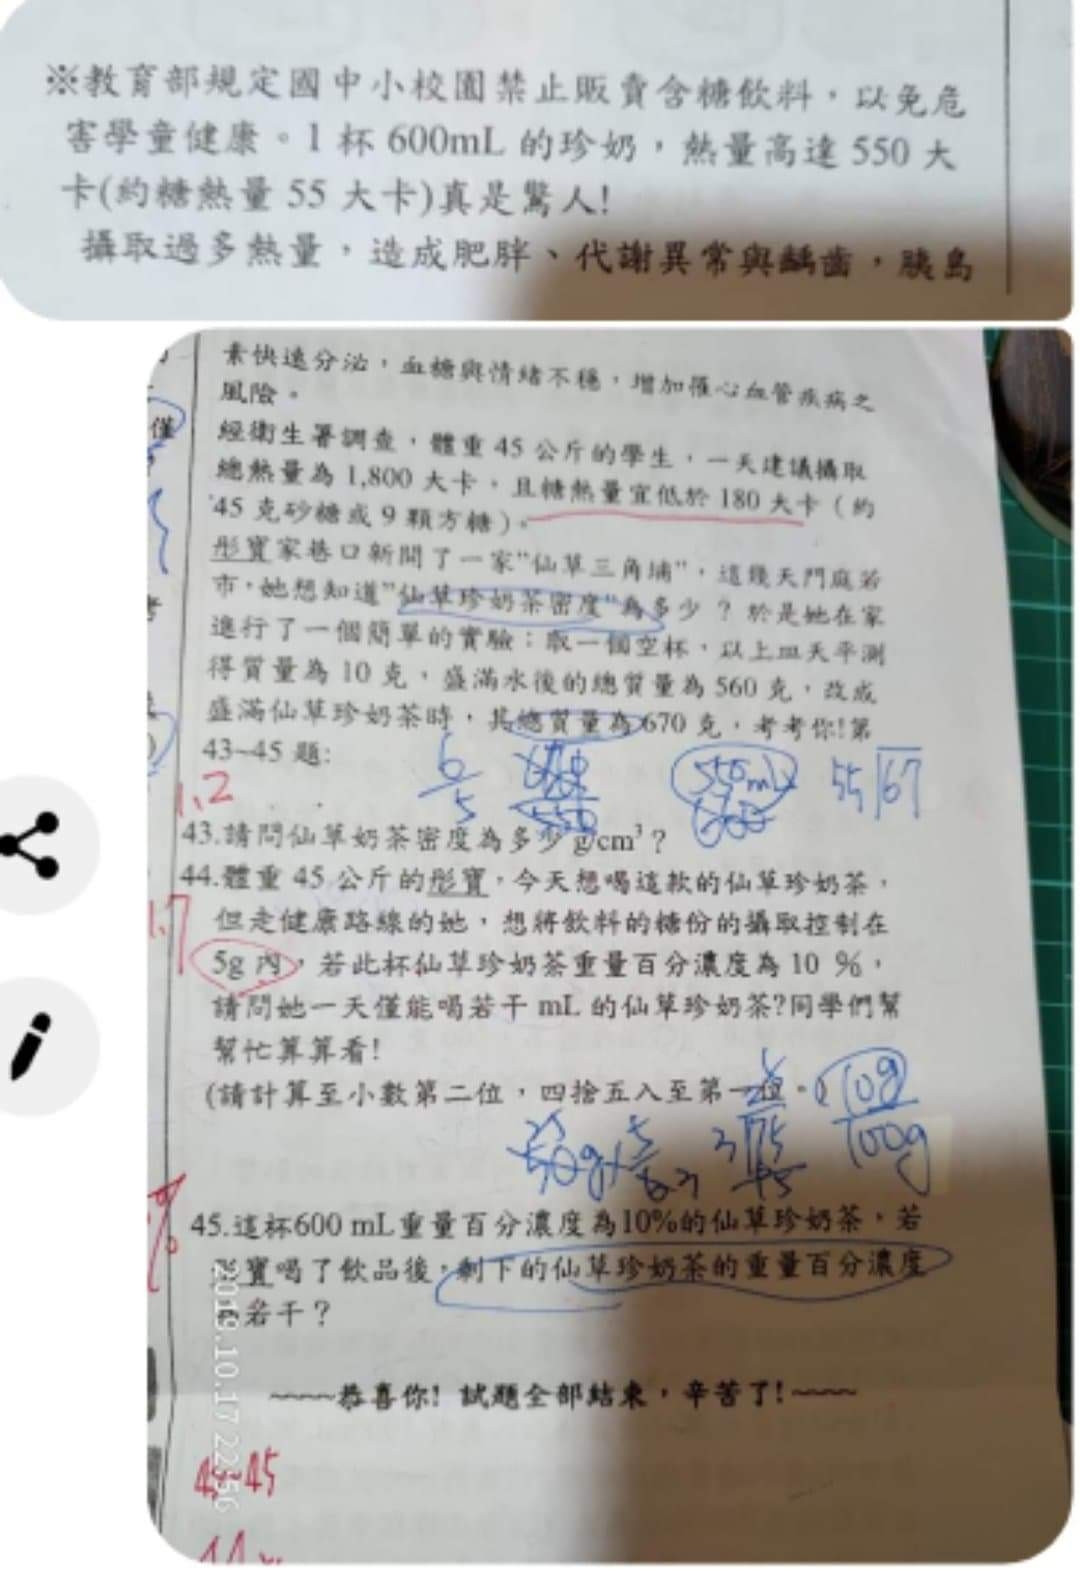 ※教育部規定國中小校園禁止販賣含糖飲料，以免危
害學童健康。1 杯 600mL 的珍奶，熱量高達 550 大
卡(約糖熱量 55 大卡)真是驚人!
攝取過多熱量，造成肥胖、代謝異常與齲齒，胰島
素快速分泌，血糖與情緒不穩，增加罹心血管疾病之
風險。
僅
經衛生署調查，體重 45 公斤的學生，一天建議攝取
總熱量為 1,800 大卡，且糖熱量宜低於 180 大卡（約
45 克砂糖或 9 顆方糖）。
彤寶家巷口新開了一家"仙草三角埔"，這幾天門庭若
市，她想知道"仙草珍奶茶密度"為多少？於是她在家
進行了一個簡單的實驗：取一個空杯，以上皿天平測
得質量為 10 克，盛滿水後的總質量為 560 克，改成
盛滿仙草珍奶茶時，其總質量為 670 克，考考你!第
43~45 題:
6
5
550mL
55 67
1.2
43.請問仙草奶茶密度為多少 g/cm³？
44.體重 45 公斤的彤寶，今天想喝這款的仙草珍奶茶，
但走健康路線的她，想將飲料的糖份的攝取控制在
5g 內，若此杯仙草珍奶茶重量百分濃度為 10 %，
請問她一天僅能喝若干 mL 的仙草珍奶茶?同學們幫
幫忙算算看!
(請計算至小數第二位，四捨五入至第一位。)
10g
100g
45.這杯600 mL重量百分濃度為10%的仙草珍奶茶，若
寶喝了飲品後，剩下的仙草珍奶茶的重量百分濃度
為若干？
~~~~恭喜你! 試題全部結束，辛苦了!~~~~
2019.10.17 22:56